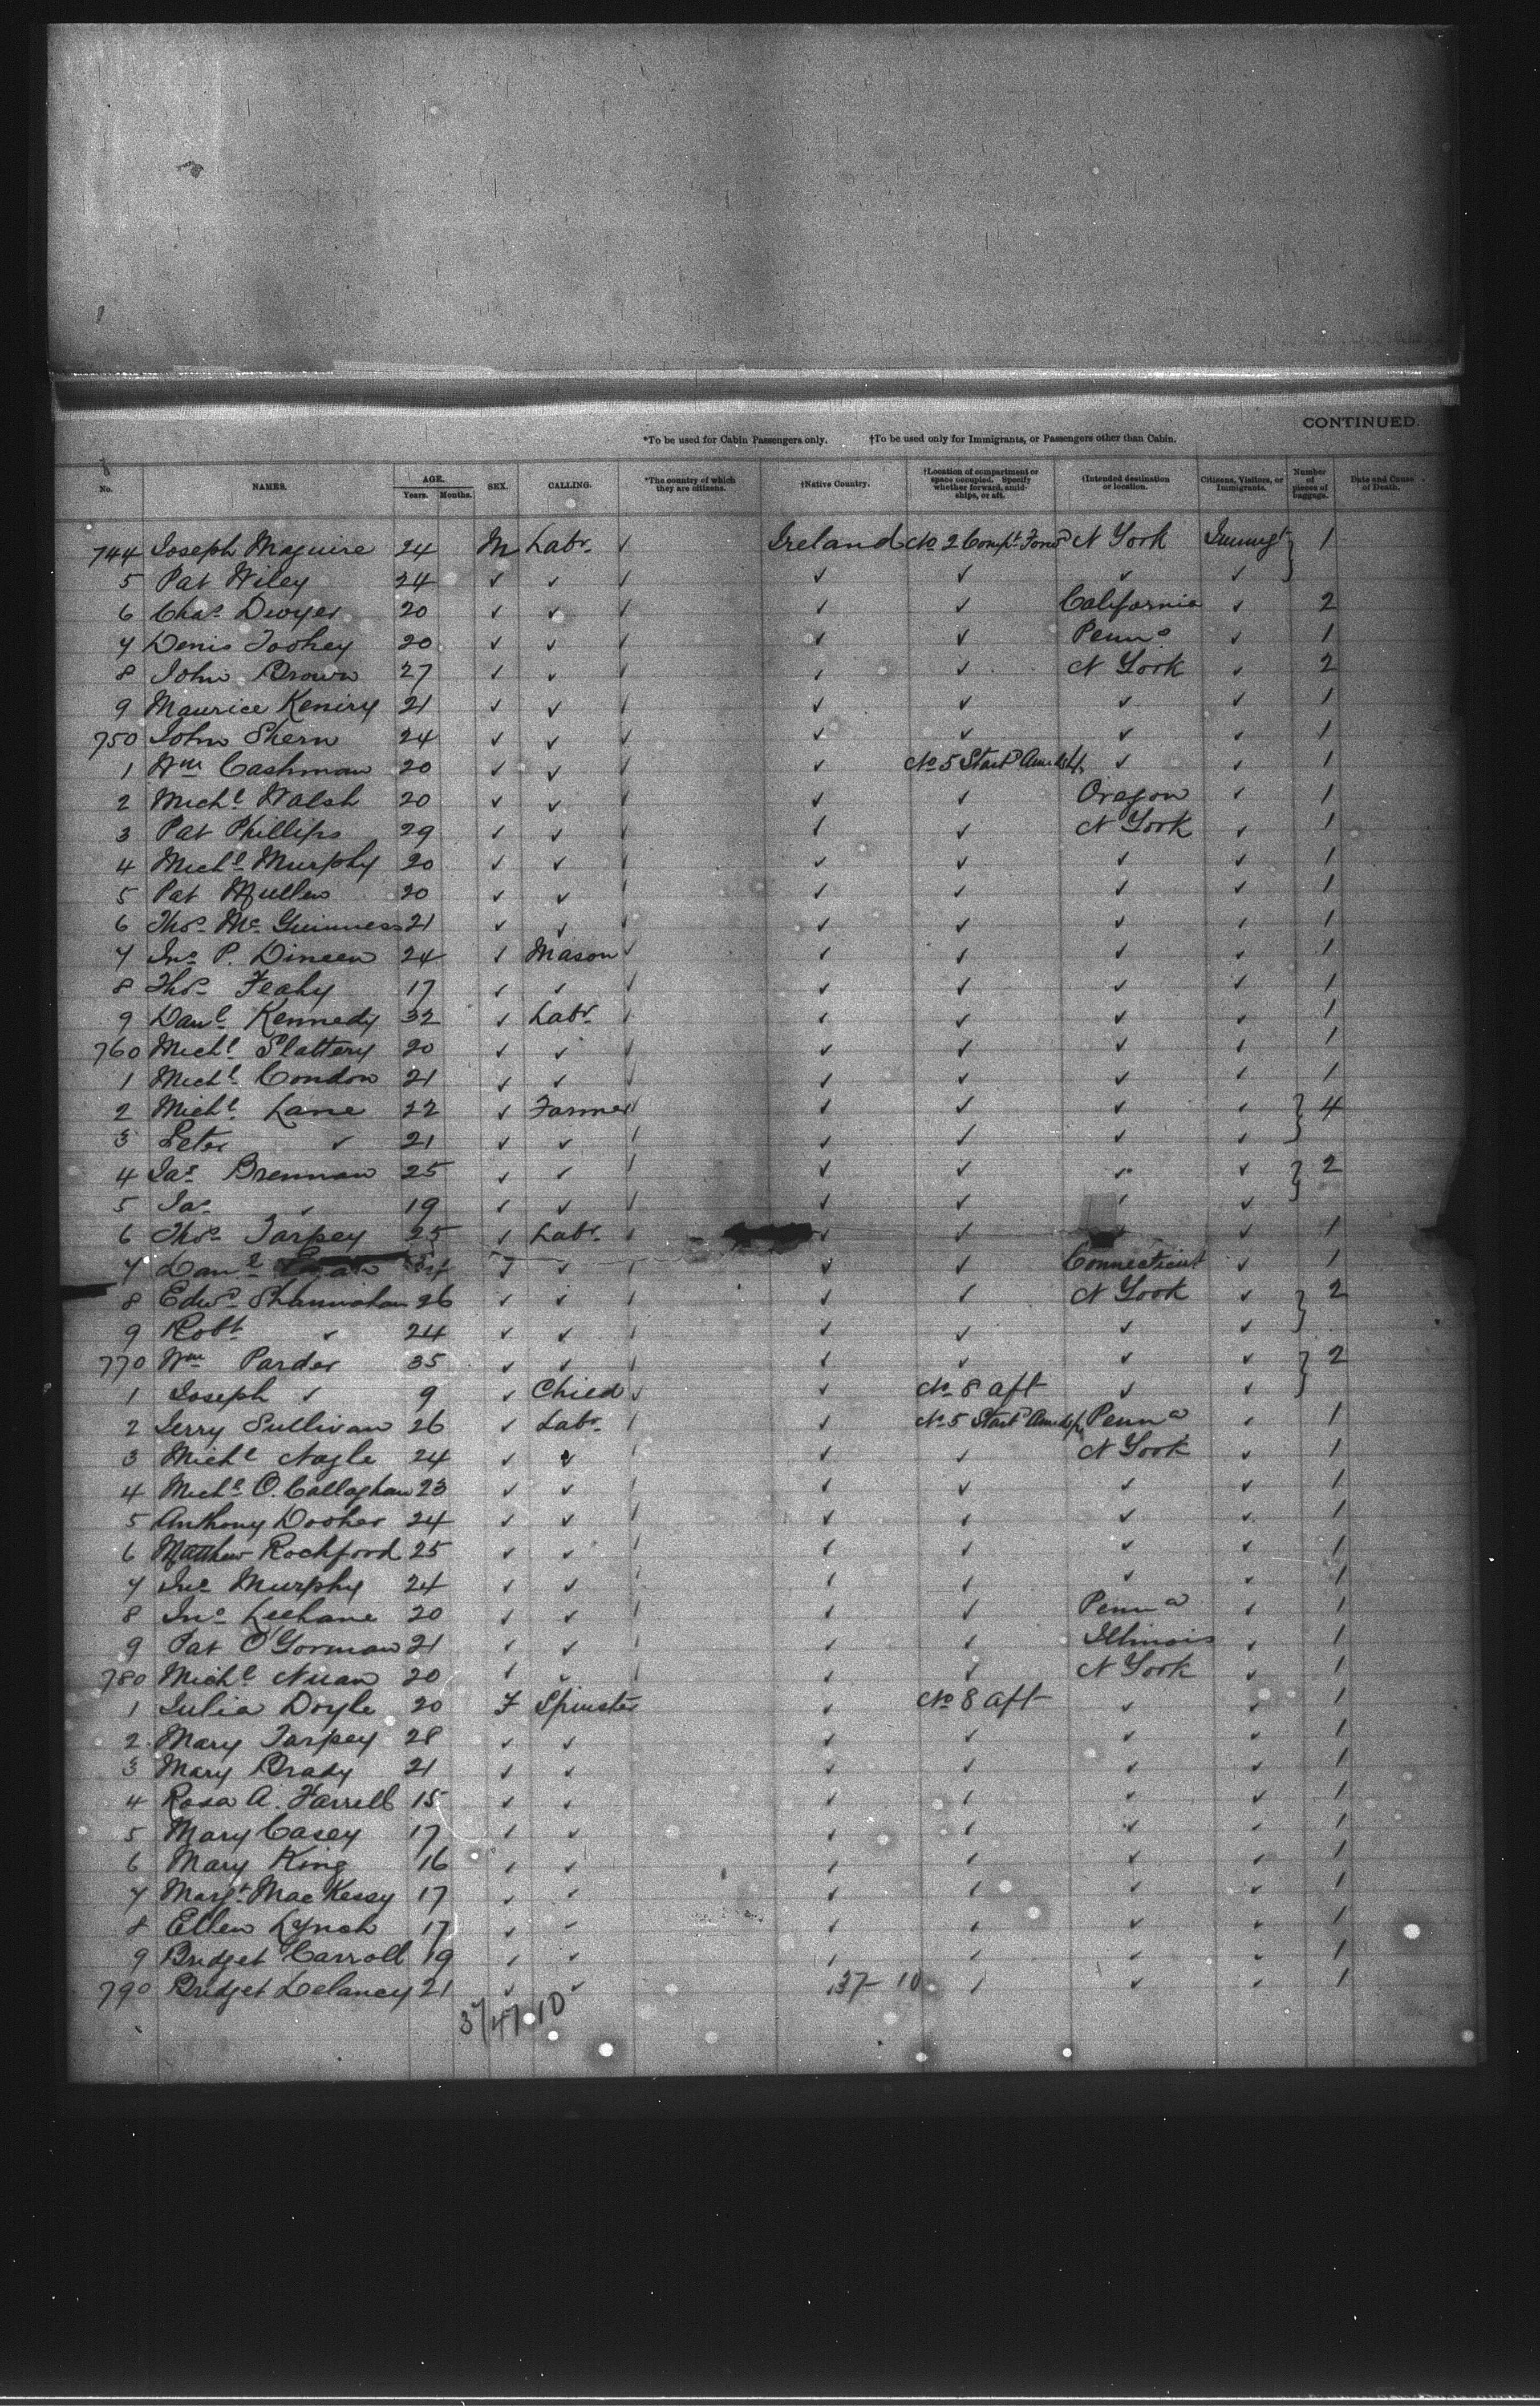 CONTINUED.
*To be used for Cabin Passengers only. †To be used only for Immigrants, or Passengers other than Cabin.
No. NAMES. AGE. Years. Months. SEX. CALLING. *The country of which they are citizens. †Native Country. †Location of compartment or space occupied. Specify whether forward, amidships, or aft. †Intended destination or location. Citizens, Visitors, or Immigrants. Number of pieces of baggage. Date and Cause of Death.
744 Joseph Maguire 24 M Labr. ✓ Ireland No 2 Compt. Forwd N York Immigt } 1
5 Pat Wiley 24 ✓ ✓ ✓ ✓ ✓ ✓ ✓
6 Chas. Dwyer 20 ✓ ✓ ✓ ✓ ✓ California ✓ 2
7 Denis Toohey 20 ✓ ✓ ✓ ✓ ✓ Penna ✓ 1
8 John Brown 27 ✓ ✓ ✓ ✓ ✓ N York ✓ 2
9 Maurice Keniry 21 ✓ ✓ ✓ ✓ ✓ ✓ ✓ 1
750 John Shern 24 ✓ ✓ ✓ ✓ ✓ ✓ ✓ 1
1 Wm Cashman 20 ✓ ✓ ✓ ✓ No 5 Starbd Amidsh. ✓ ✓ 1
2 Michl. Walsh 20 ✓ ✓ ✓ ✓ ✓ Oregon ✓ 1
3 Pat Phillips 29 ✓ ✓ ✓ ✓ ✓ N York ✓ 1
4 Michl. Murphy 20 ✓ ✓ ✓ ✓ ✓ ✓ ✓ 1
5 Pat Mullen 20 ✓ ✓ ✓ ✓ ✓ ✓ ✓ 1
6 Thos. Mc Guinness 21 ✓ ✓ ✓ ✓ ✓ ✓ ✓ 1
7 Jno. P. Dineen 24 ✓ Mason ✓ ✓ ✓ ✓ ✓ 1
8 Thos. Feahy 17 ✓ ✓ ✓ ✓ ✓ ✓ ✓ 1
9 Danl. Kennedy 32 ✓ Labr. ✓ ✓ ✓ ✓ ✓ 1
760 Michl. Slattery 20 ✓ ✓ ✓ ✓ ✓ ✓ ✓ 1
1 Michl. Condon 21 ✓ ✓ ✓ ✓ ✓ ✓ ✓ 1
2 Michl. Lane 22 ✓ Farmer ✓ ✓ ✓ ✓ ✓ } 4
3 Peter ✓ 21 ✓ ✓ ✓ ✓ ✓ ✓ ✓
4 Jas. Brennan 25 ✓ ✓ ✓ ✓ ✓ ✓ ✓ } 2
5 Jas. ✓ 19 ✓ ✓ ✓ ✓ ✓ ✓ ✓
6 Thos. Tarpey 25 ✓ Labr. ✓ ✓ ✓ ✓ ✓ 1
7 Danl. ✓ ✓ ✓ ✓ Connecticut ✓ 1
8 Edwd. Shannahan 26 ✓ ✓ ✓ ✓ ✓ N York ✓ } 2
9 Robt. ✓ 24 ✓ ✓ ✓ ✓ ✓ ✓ ✓
770 Wm Parder 35 ✓ ✓ ✓ ✓ ✓ ✓ } 2
1 Joseph ✓ 9 ✓ Chied ✓ ✓ No 8 aft ✓ ✓
2 Jerry Sullivan 26 ✓ Labr. ✓ ✓ No 5 Starbd Amidsh. Penna ✓ 1
3 Michl. Nagle 24 ✓ ✓ ✓ ✓ ✓ N York ✓ 1
4 Michl. O. Callaghan 23 ✓ ✓ ✓ ✓ ✓ ✓ ✓ 1
5 Anthony Dooher 24 ✓ ✓ ✓ ✓ ✓ ✓ ✓ 1
6 Matthew Rochford 25 ✓ ✓ ✓ ✓ ✓ ✓ ✓ 1
7 Jno. Murphy 24 ✓ ✓ ✓ ✓ ✓ ✓ ✓ 1
8 Jno. Leehane 20 ✓ ✓ ✓ ✓ ✓ Penna ✓ 1
9 Pat O'Gorman 21 ✓ ✓ ✓ ✓ ✓ Illinois ✓ 1
780 Michl. Nuan 20 ✓ ✓ ✓ ✓ ✓ N York ✓ 1
1 Julia Doyle 20 F Spinster ✓ No 8 aft ✓ ✓ 1
2 Mary Tarpey 28 ✓ ✓ ✓ ✓ ✓ ✓ 1
3 Mary Brady 21 ✓ ✓ ✓ ✓ ✓ ✓ 1
4 Rosa A. Farrell 15 ✓ ✓ ✓ ✓ ✓ ✓ 1
5 Mary Casey 17 ✓ ✓ ✓ ✓ ✓ ✓ 1
6 Mary King 16 ✓ ✓ ✓ ✓ ✓ ✓ 1
7 Margt. MacKessy 17 ✓ ✓ ✓ ✓ ✓ ✓ 1
8 Ellen Lynch 17 ✓ ✓ ✓ ✓ ✓ ✓ 1
9 Bridget Carroll 19 ✓ ✓ ✓ ✓ ✓ ✓ 1
790 Bridget Delaney 21 ✓ ✓ 37 10 ✓ ✓ 1
37/47 10